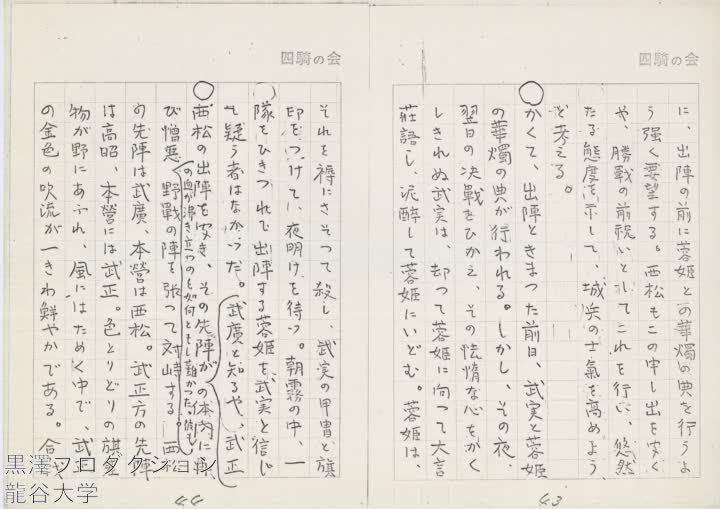 四騎の会
に、出陣の前に蓉姫との華燭の典を行うよ
う強く要望する。西松もこの申し出を安く
や、勝戦の前祝いとしてこれを行い、悠然
たる態度を示して、城兵の士氣を高めよう
と考える。
かくて、出陣ときまった前日、武実と蓉姫
の華燭の典が行われる。しかし、その夜、
翌日の決戦をひかえ、その怯惰な心をかく
しきれぬ武実は、却って蓉姫に向って大言
荘語し、泥酔して蓉姫にいどむ。蓉姫は、
43
四騎の会
それを褥にさそって殺し、武実の甲冑と旗
印をつけて、夜明けを待つ。朝霧の中、一
隊をひきつれて出陣する蓉姫を武実と信じ
て疑う者はなかった。武廣と知るや、武正
西松の出陣を聞き、その先陣が
の体内に再
び憎悪
の血が沸き立つのを如何ともし難かった。
野戰の陣を張って対峙する。西松
の先陣は武廣、本營は西松。武正方の先陣
は高昭、本営には武正。色とりどりの旗差
物が野にあふれ、風にはためく中で、武正
の金色の吹流が一きわ鮮やかである。合
44
黒澤プロダクション
龍谷大学